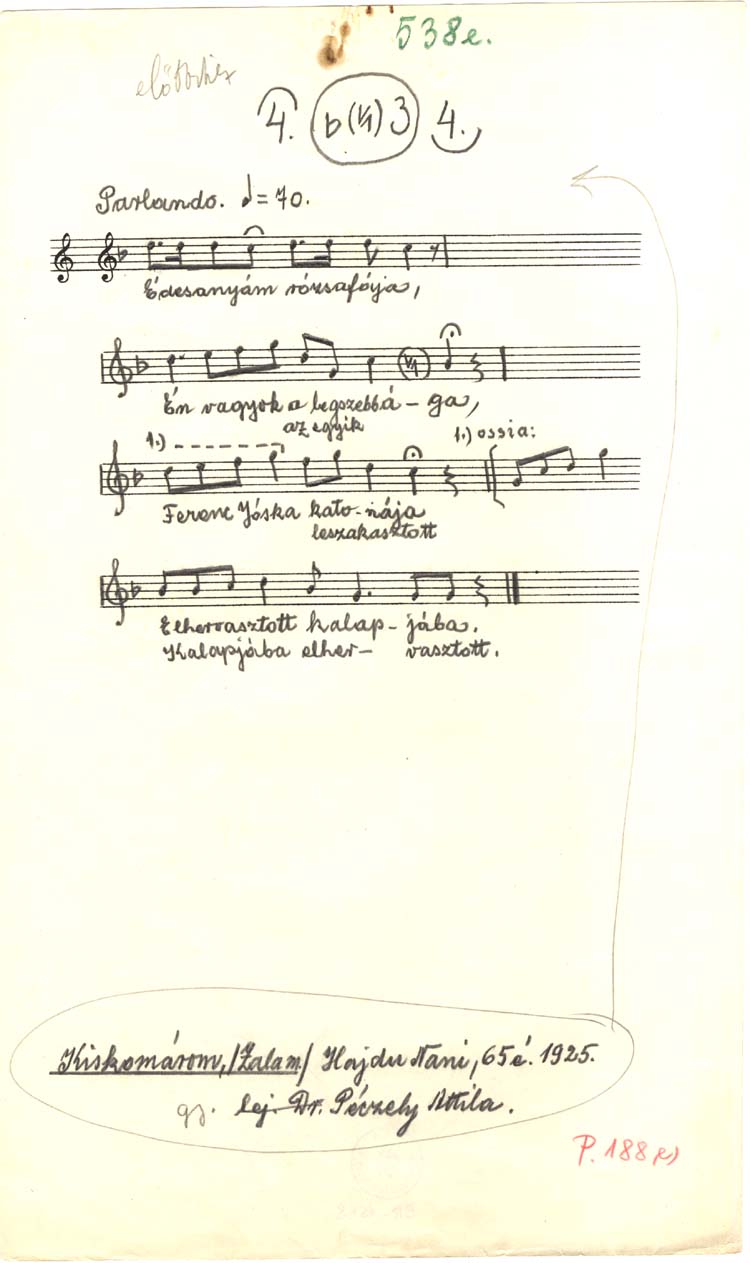 538e.
előttihez
4. b(VII) 3 4.
Parlando. ♩=70.
Édesanyám rózsafája,
(VII)
Én vagyok a legszebbá-ga,
az egyik
1.) 1.) ossia:
Ferenc Jóska kato-nája
leszakasztott
Elhervasztott kalap-jába.
Kalapjába elher- vasztott.
Kiskomárom, /Zalam/ Hajdu Nani, 65 é. 1925.
gy. lej. Dr. Péczely Attila.
P. 188